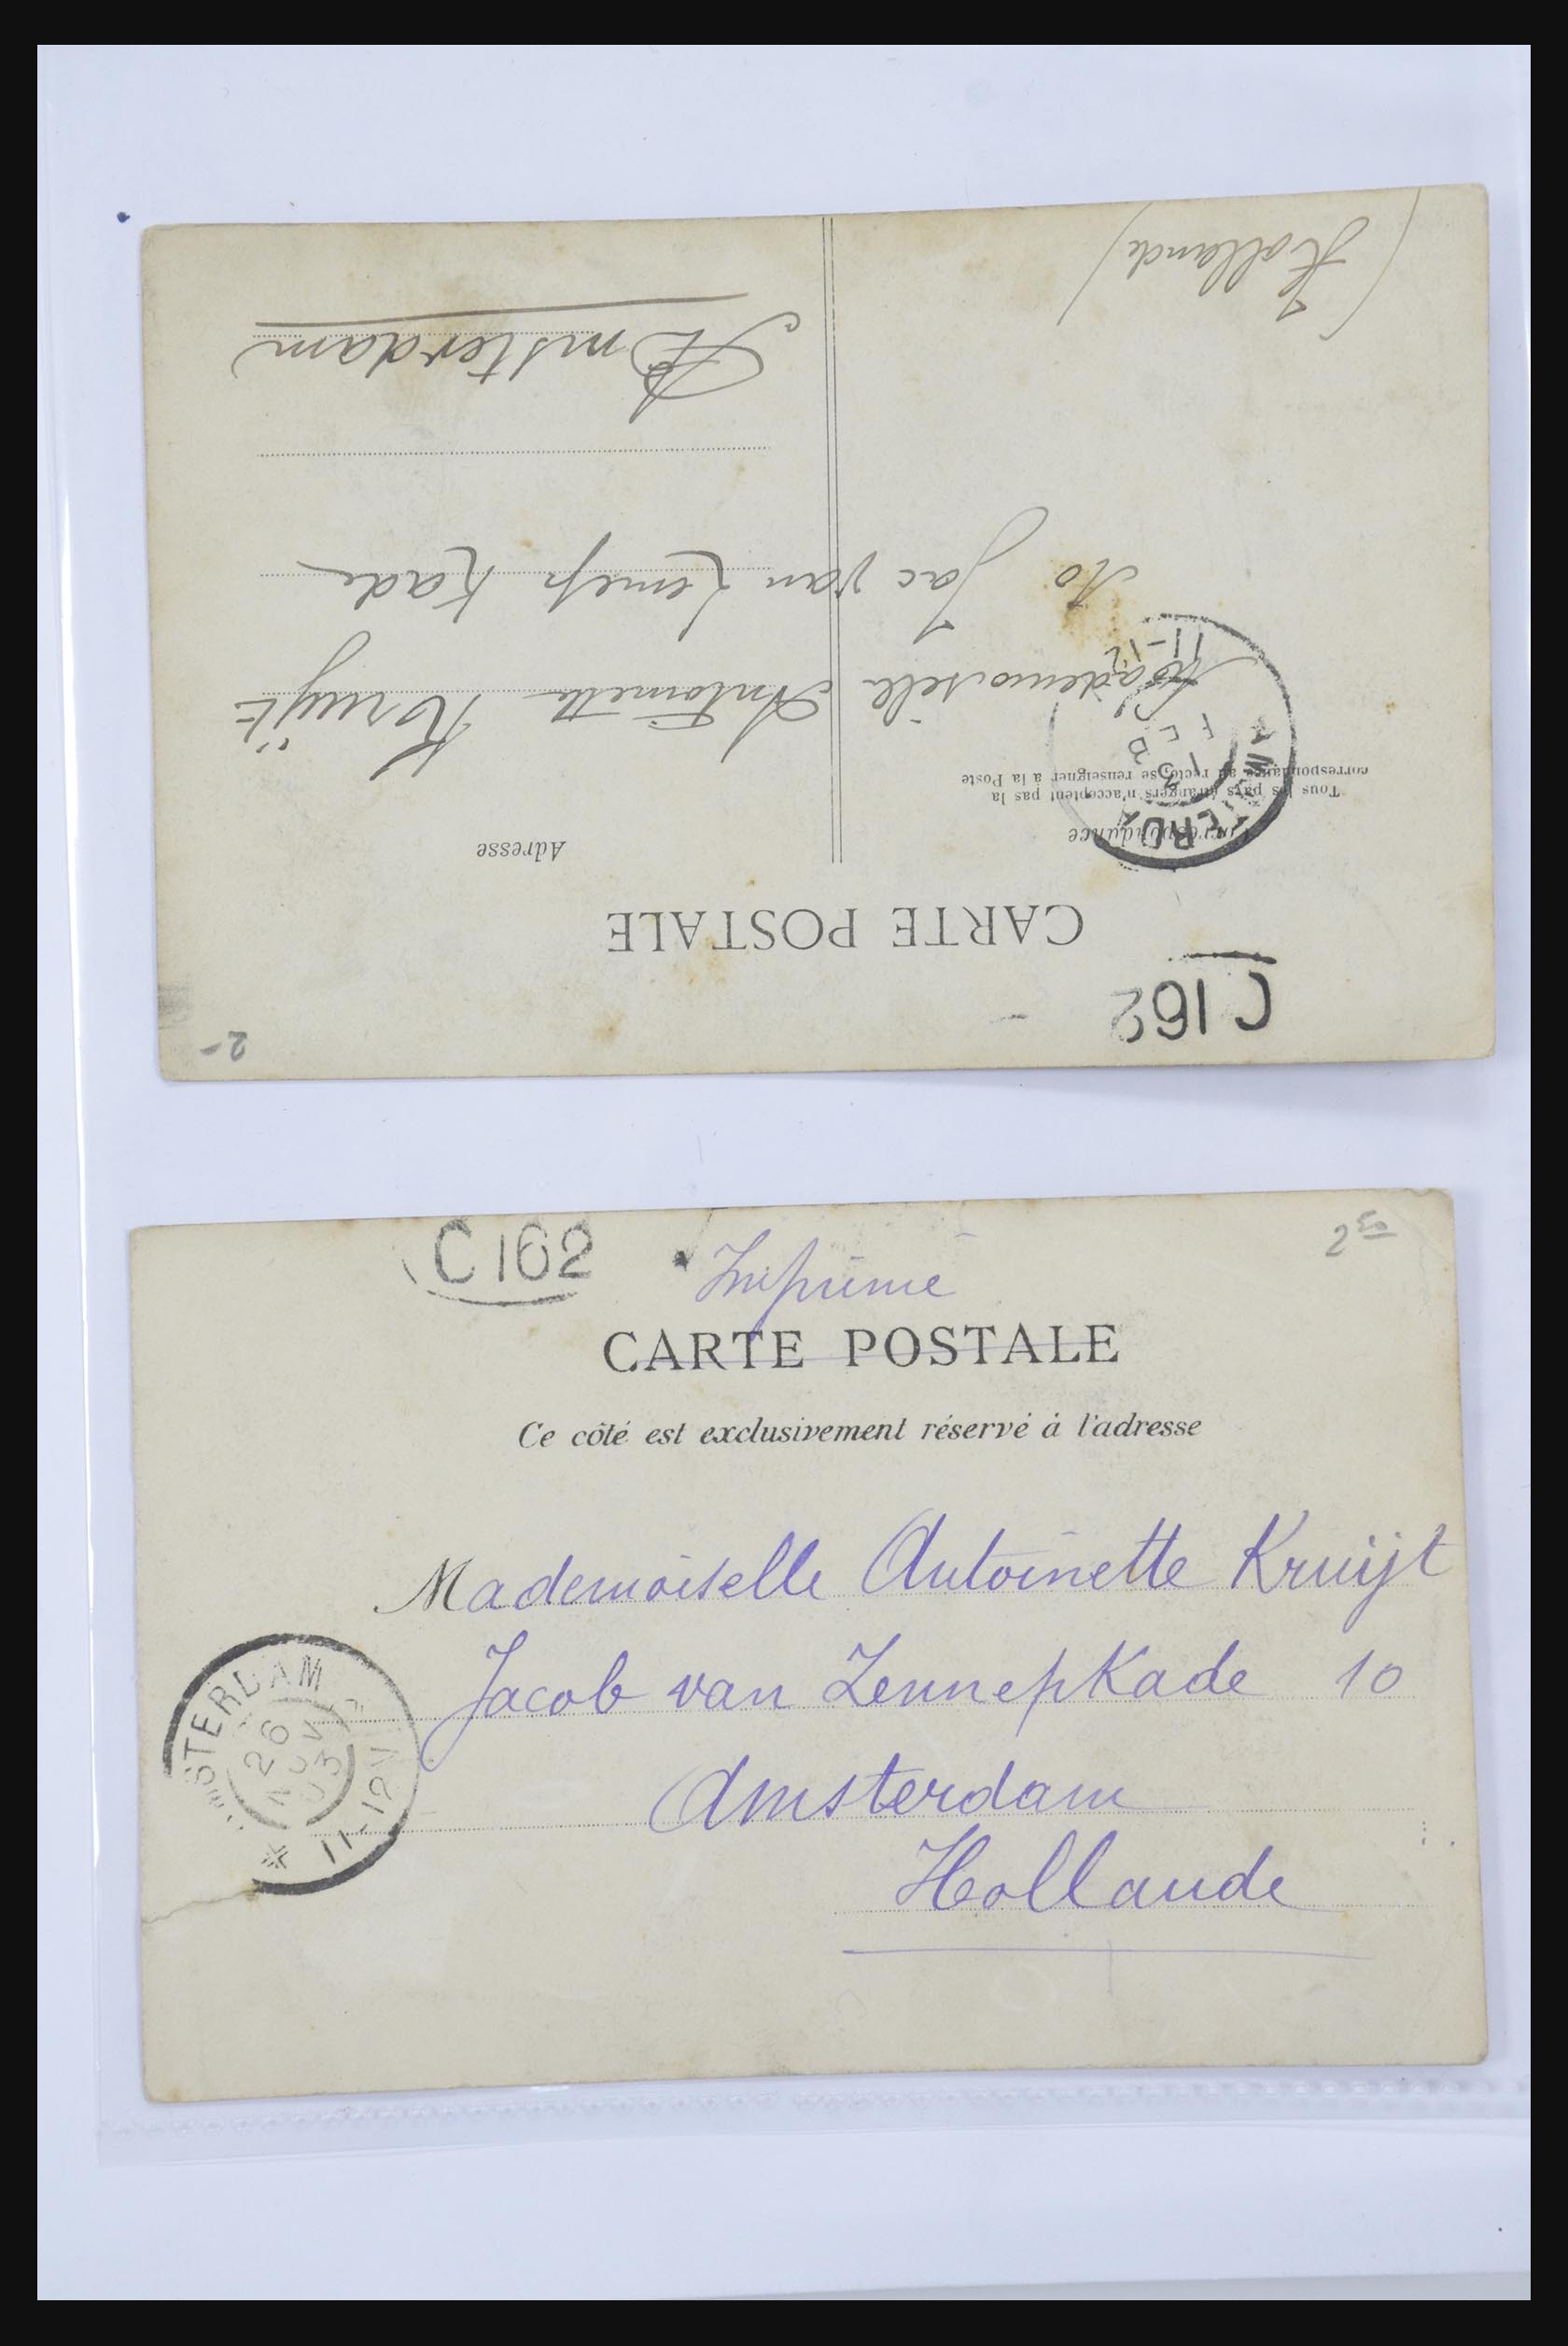 2-
C162
CARTE POSTALE
Correspondance
Adresse
Tous les pays étrangers n'acceptent pas la
correspondance au recto, se renseigner à la Poste
13
FEB
11-12
Mademoiselle Antoinette Kruijt
10 Jac van Lennep Kade
Amsterdam
(Hollande)
C162
Imprimé
2.50
CARTE POSTALE
Ce côté est exclusivement réservé à l'adresse
Mademoiselle Antoinette Kruijt
Jacob van Lennep Kade 10
Amsterdam
Hollande
AMSTERDAM
26
NOV
03
11-12V